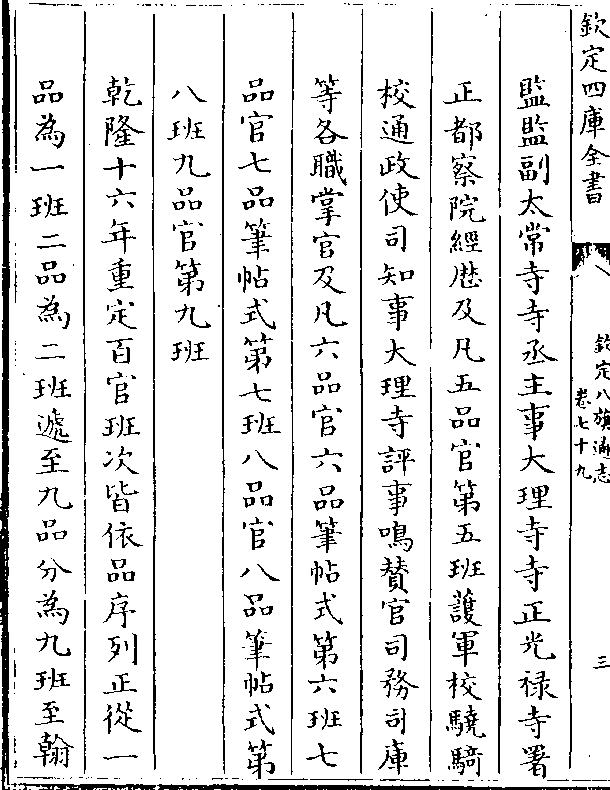 欽定四庫全書
欽定八旗通志
卷七十九
三
監監副太常寺寺丞主事大理寺寺正光禄寺署
正都察院經歴及凡五品官第五班䕶軍校驍騎
校通政使司知事大理寺評事鳴賛官司務司庫
等各職掌官及凡六品官六品筆帖式第六班七
品官七品筆帖式第七班八品官八品筆帖式第
八班九品官第九班
乾隆十六年重定百官班次皆依品序列正從一
品為一班二品為二班遞至九品分為九班至翰